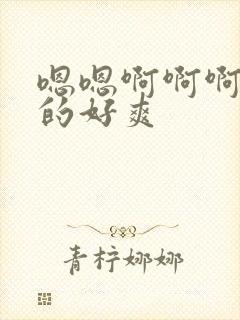 嗯嗯啊啊啊
的好爽
青柠娜娜